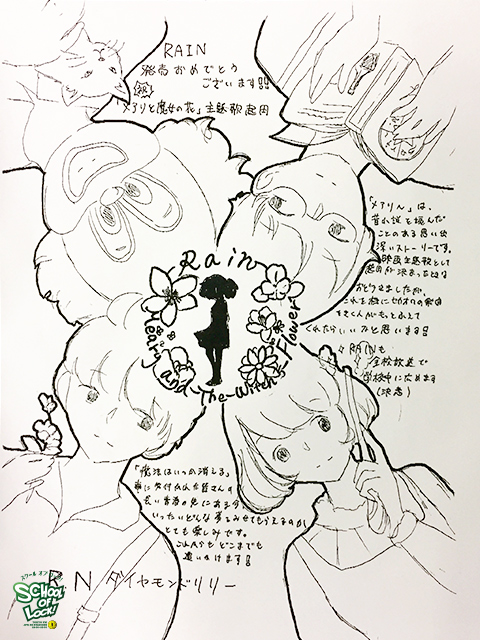 RAIN
発売おめでとう
ございます!!
(祝)
「メアリと魔女の花」主題歌起用
「メアリ」は、
昔小説を読んだ
ことのある思い出
深いストーリーです。
映画主題歌として
起用が決まった時は
おどろきましたが、
これを機にセカオワの歌を
すくう人がもっとふえて
くれたらいいなと思います!!
♪RAINも
全校放送で
学校中に広めます
(決意)
Rain
Meary-and-The-Witch's-Flower
「魔法はいつか消える」
事に気付いた皆さんの
長い青春の先にある今、
いったいどんな夢をみせてもらえるのか
とても楽しみです。
これからもどこまでも
追いかけます!
RN ダイヤモンドリリー
スクール オブ ロック!
SCHOOL
OF
LOCK!